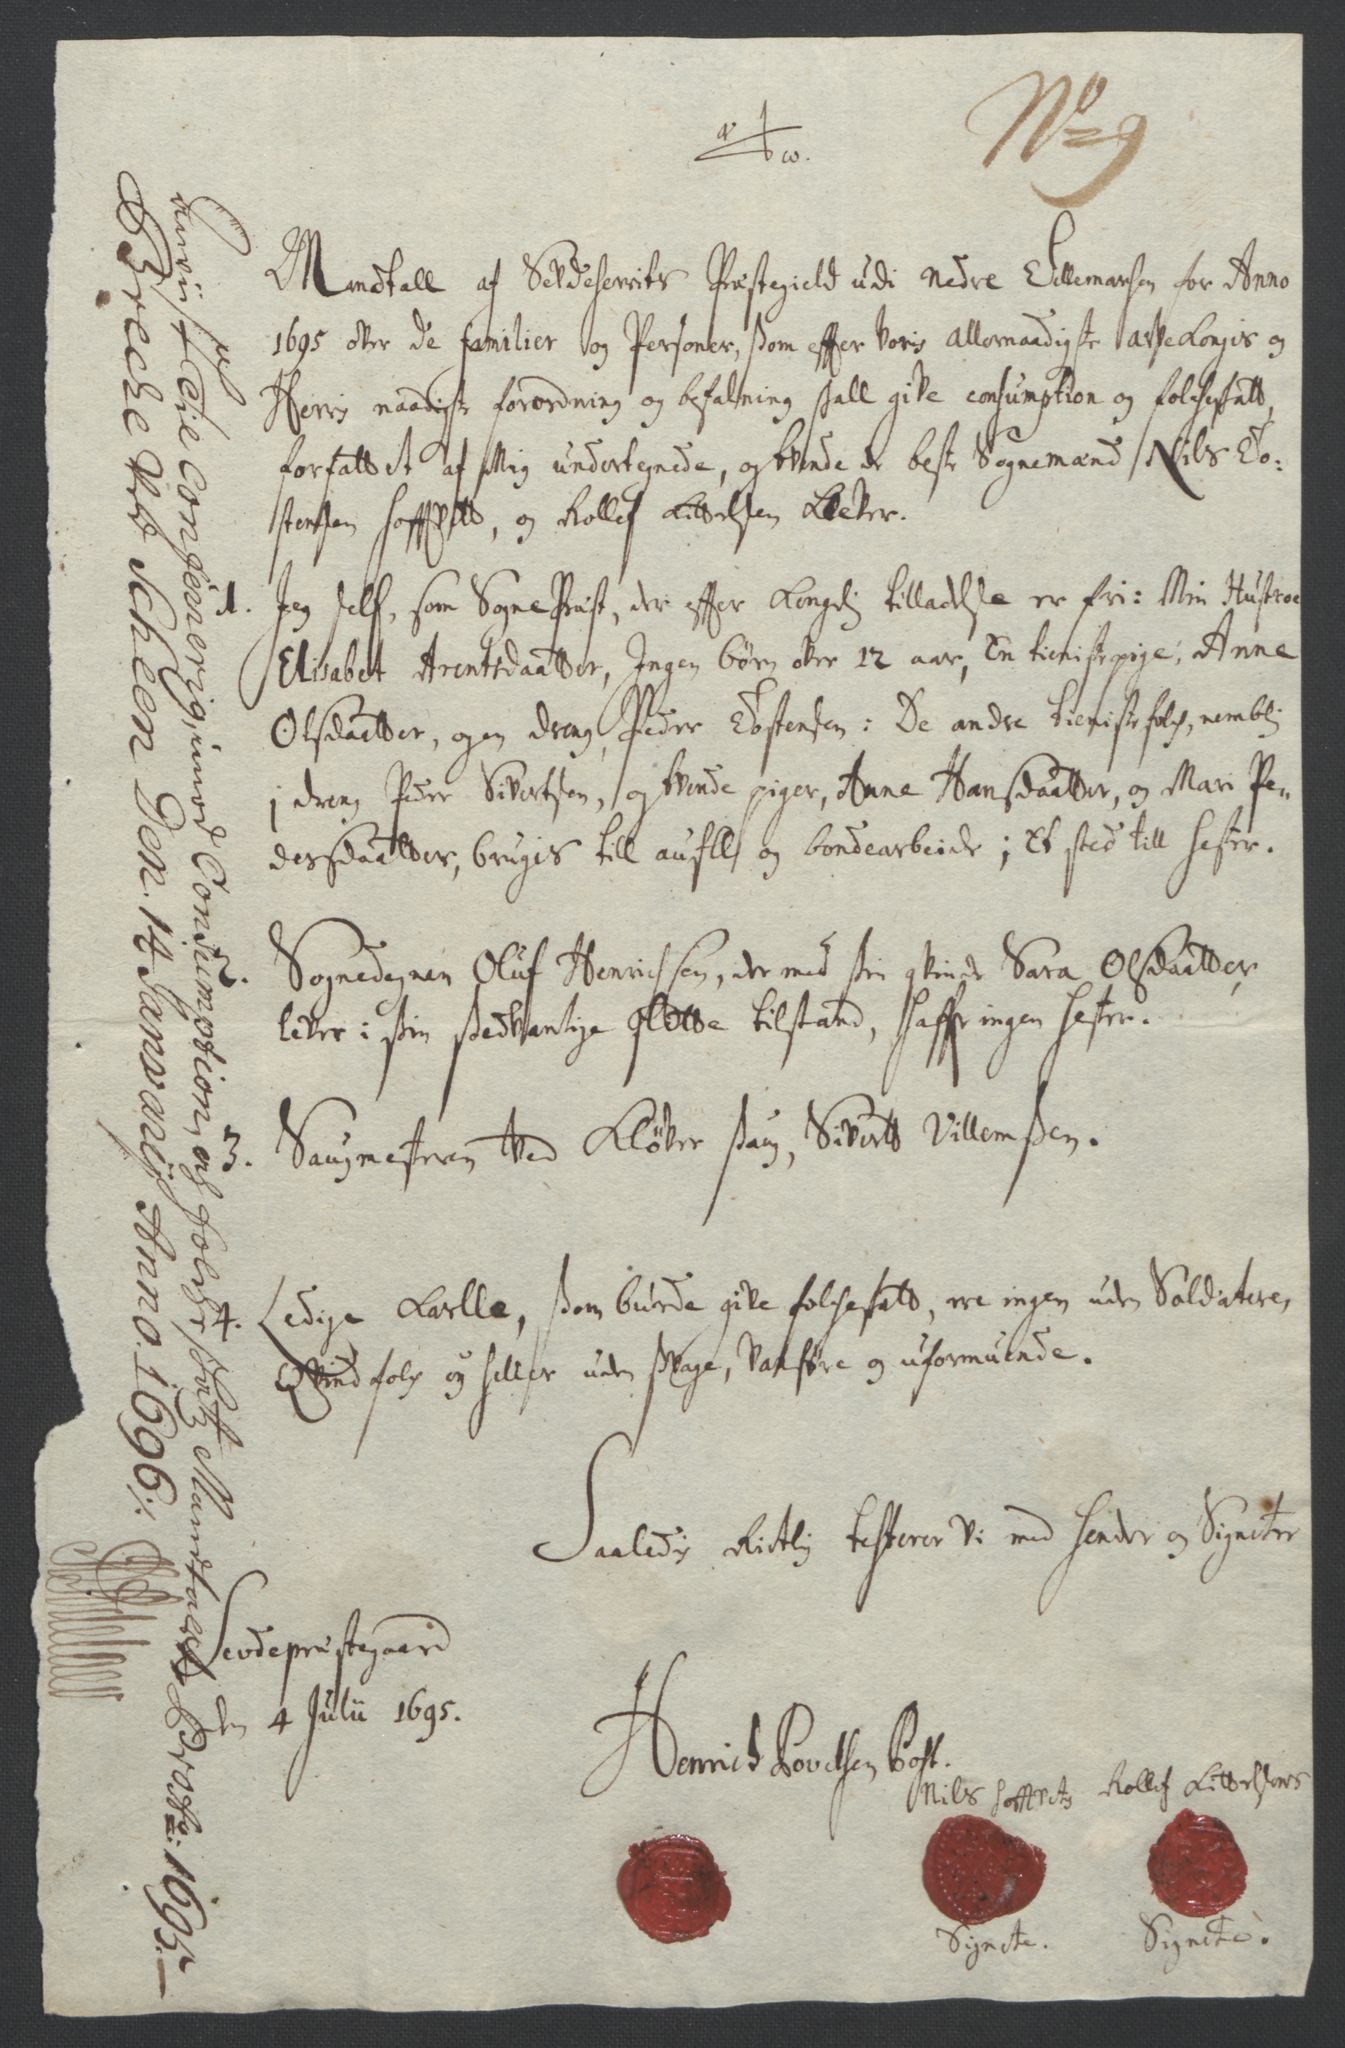 No 9
α/ω.
Mandtall af Sevdeherrits Præstegield udi nedre Tillemarken for Anno
1695 over de familier og Personer, som effter voris allernaadigste arfve Kongis og
Herris naadigste forordning og befalning skall give consumption og folcheskatt,
forfattet af Mig undertegnede, og tvende de beste Sognemænd Nils To-
stensen Hoffvett, og Rollef Kittelsen Klever.
1. Jeg self, som SognePræst, der effter Kongelig tilladelse er fri: Min Hustroe
Elisabet Arentsdaatter, Ingen børn over 12 aar, En tienistepige, Anne
Olsdaatter, og en dreng, Peder Tostensen: De andre tienistefolch, nemblig
j dreng Peder Sivertsen, og tvende piger, Anne Hansdaatter, og Mari Pe-
dersdaatter, bruges till aufll og bondearbeide; Et sted till hester.
2. Sognedegnen Oluf Henrichsen, der med sin qvinde Sara Olsdaatter,
lever i sin sedvanlige slette tilstand, haffver ingen hester.
3. Saugmesteren ved Kløver saug, Sivert Villemsen.
4. Ledige Karlle, som burde give folcheskatt, ere ingen uden Soldatere,
Qvindfolch ey heller uden svage, vanføre og uformuende.
Saaledis Rictig testerer vi med hender og Signeter
Sevdeprestegaard
den 4 Julii 1695.
Henrich Povelsen Bost.
Nils Hoffvets Rollef Kittelsens
Signete. Signete.
imod Consumption, och Folche Schatz Mandtallet Pro Ao: 1695
Bratsberg Scheen Den. 14 Januarij Anno. 1696